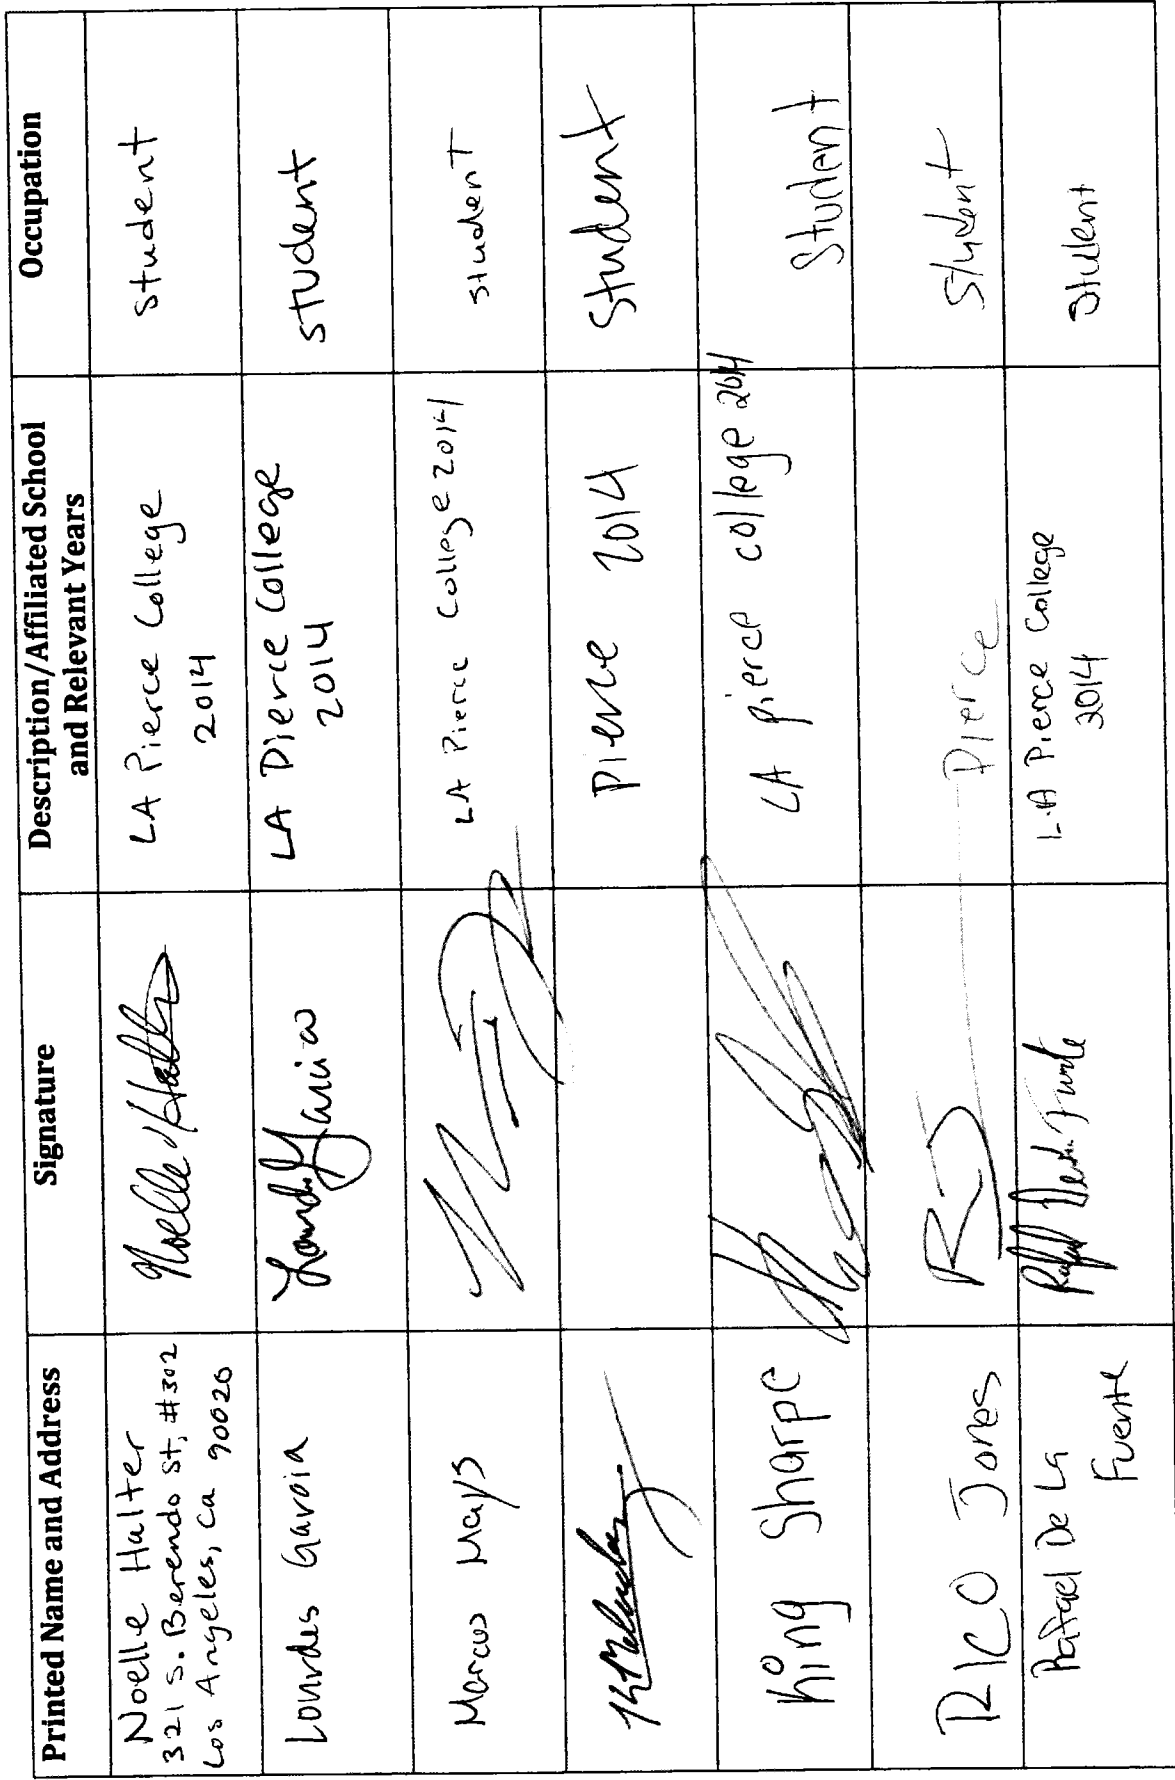 Printed Name and Address
Signature
Description/Affiliated School
and Relevant Years
Occupation
Noelle Halter
321 S. Berendo St, #302
Los Angeles, Ca 90020
Noelle Halter
LA Pierce College
2014
student
Lourdes Garcia
Lourdes Garcia
LA Pierce College
2014
student
Marcus Mays
LA Pierce College 2014
student
Pierce 2014
Student
King Sharpe
LA pierce college 2014
Student
Rico Jones
RJ
Pierce
Student
Rafael De La
Fuente
Rafael De La Fuente
L.A Pierce College
2014
Student